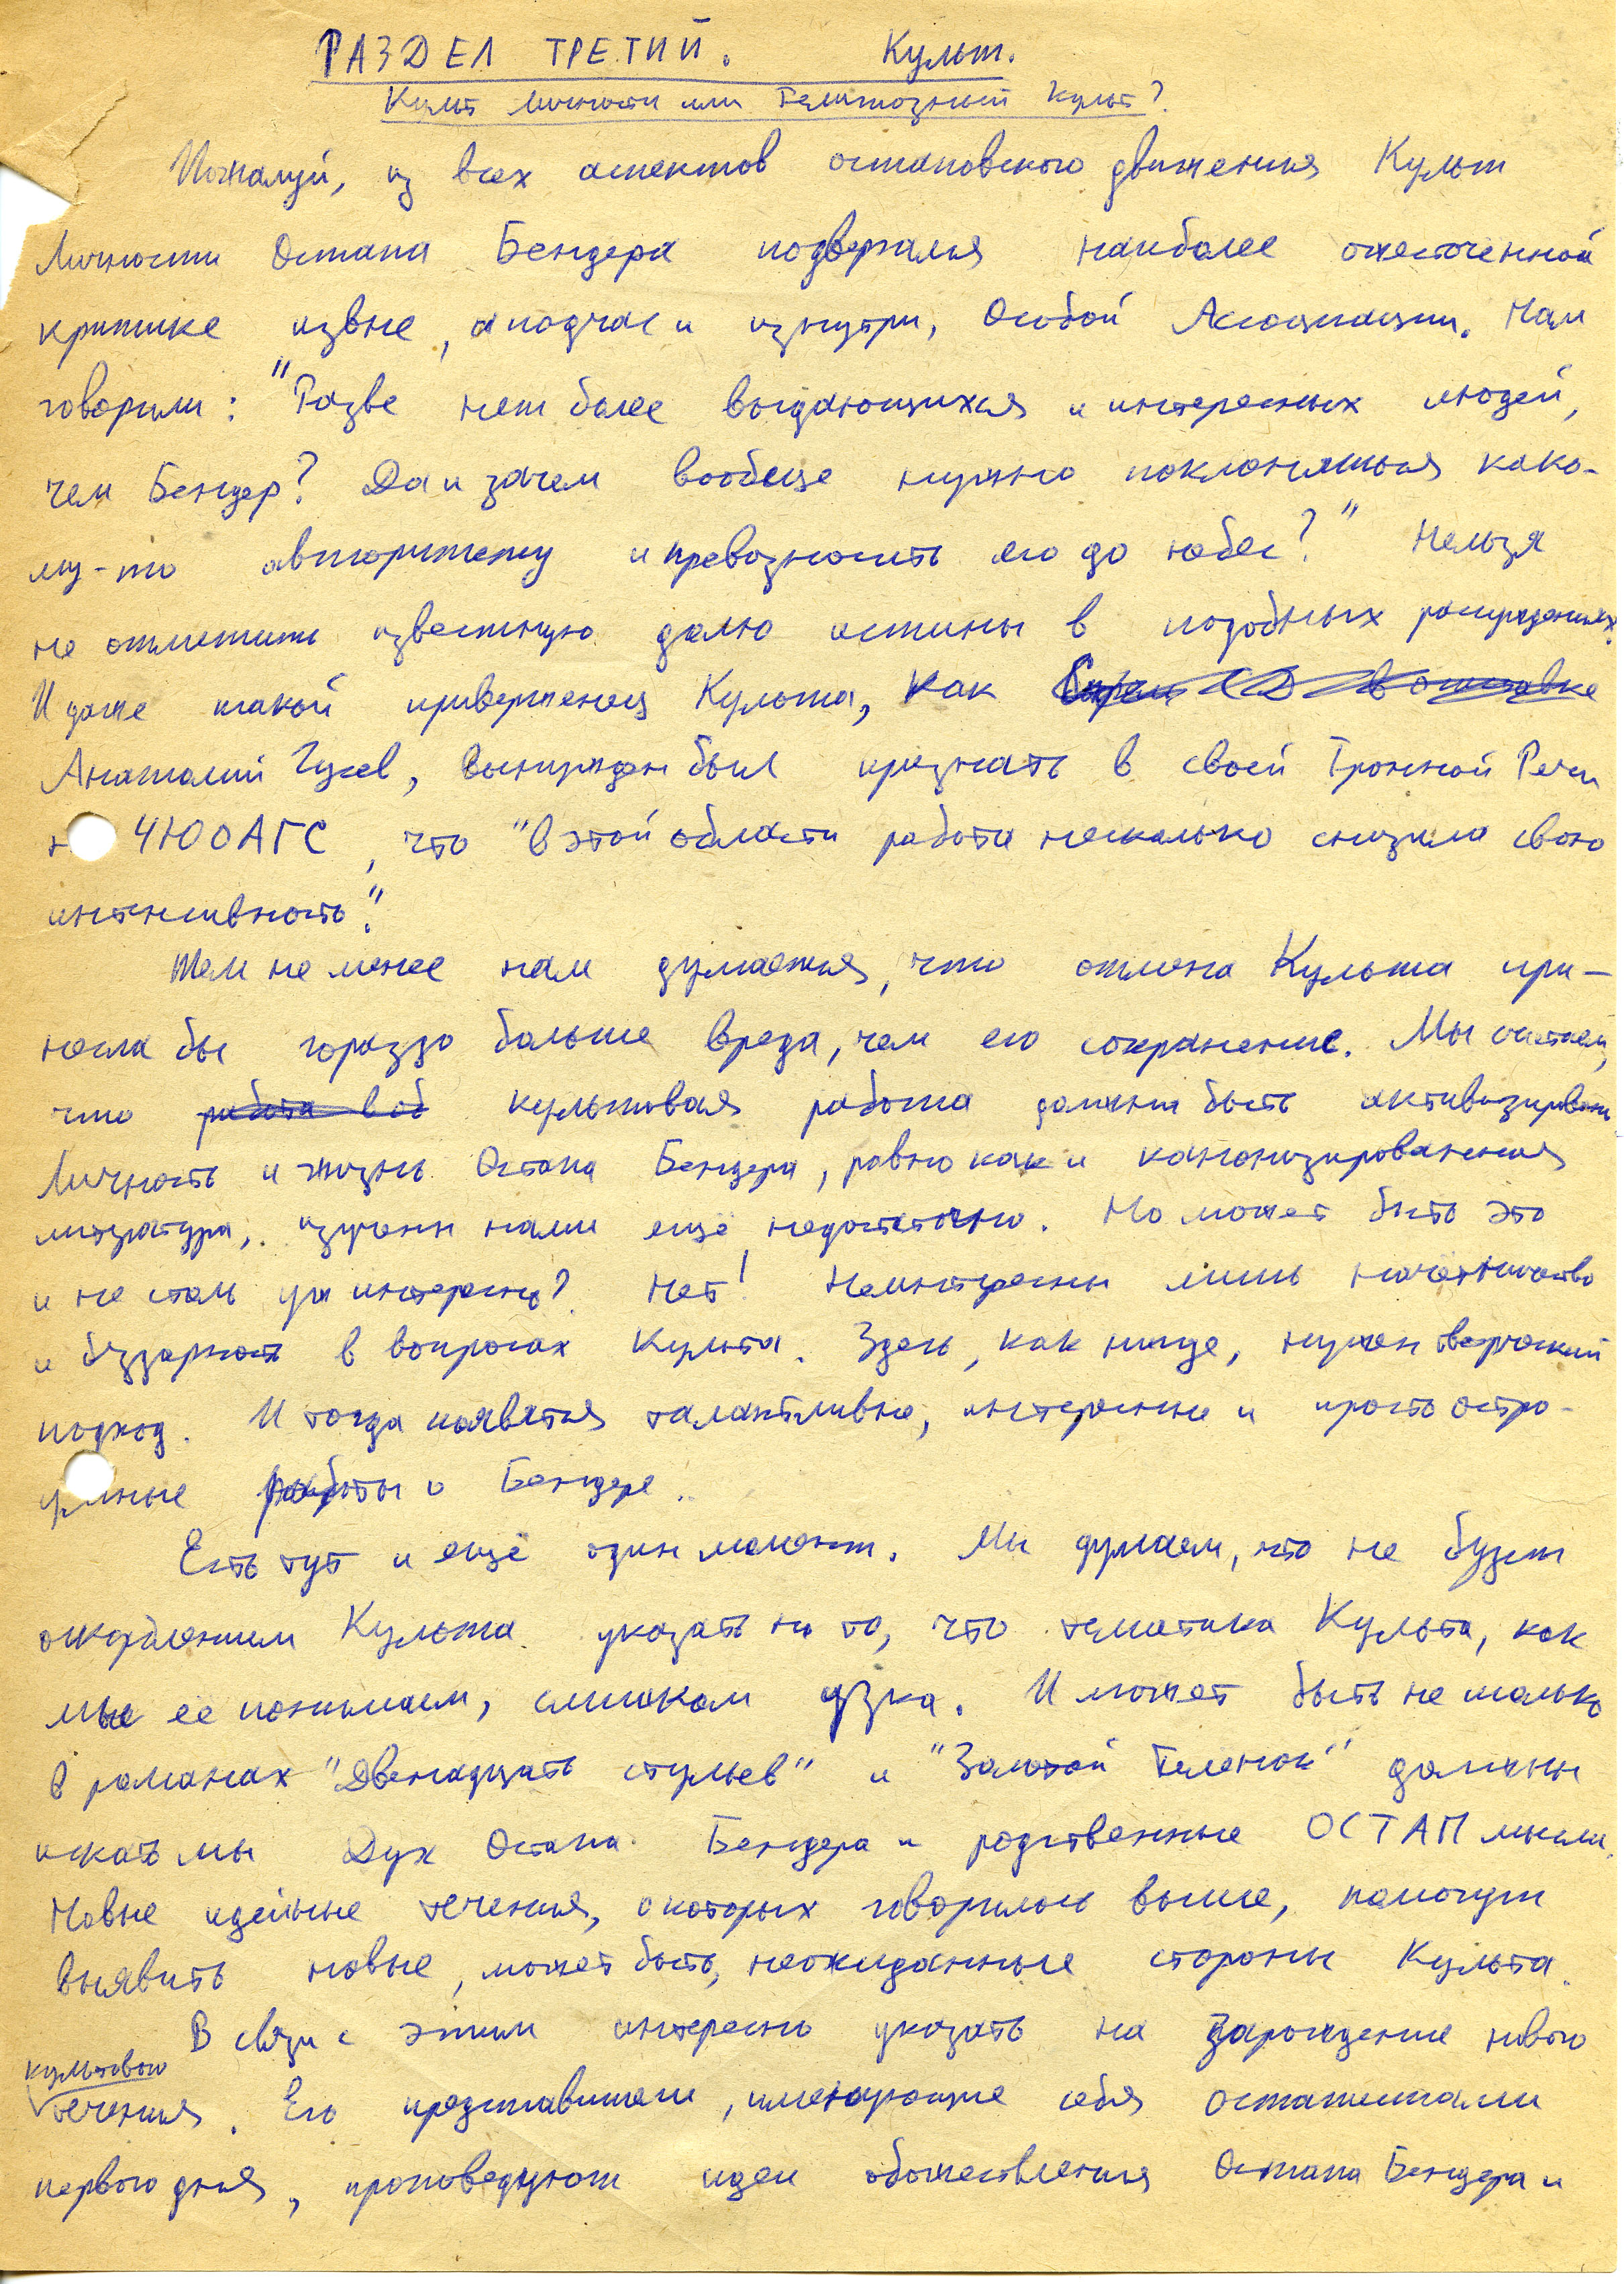 РАЗДЕЛ ТРЕТИЙ. Культ.
Культ личности или религиозный культ?
Пожалуй, из всех аспектов остаповского движения Культ
Личности Остапа Бендера подвергался наиболее ожесточенной
критике извне, а подчас и изнутри, Особой Ассоциации. Нам
говорили: "Разве нет более выдающихся и интересных людей,
чем Бендер? Да и зачем вообще нужно поклоняться како-
му-то авторитету и превозносить его до небес?" Нельзя
не отметить известную долю истины в подобных рассуждениях.
И даже такой приверженец Культа, как
Анатолий Гусев, вынужден был признать в своей Тронной Речи
на 4ЮОАГС, что "в этой области работа несколько снизила свою
интенсивность."
Тем не менее нам думается, что отмена Культа при-
несла бы гораздо больше вреда, чем его сохранение. Мы считаем,
что работа в об культовая работа должна быть активизирована.
Личность и жизнь Остапа Бендера, равно как и канонизированная
литература, изучены нами ещё недостаточно. Но может быть это
и не столь уж интересно? Нет! Неинтересны лишь начётничество
и бездарность в вопросах Культа. Здесь, как нигде, нужен творческий
подход. И тогда появятся талантливые, интересные и просто остро-
умные работы о Бендере.
Есть тут и ещё один момент. Мы думаем, что не будет
оскорблением Культа указать на то, что тематика Культа, как
мы её понимаем, слишком узка. И может быть не только
в романах "Двенадцать стульев" и "Золотой Теленок" должны
искать мы Дух Остапа Бендера и родственные ОСТАПу мысли.
Новые идейные течения, о которых говорилось выше, помогут
выявить новые, может быть, неожиданные стороны Культа.
В связи с этим интересно указать на зарождение нового
культового
течения. Его представители, именующие себя остатистами
первого дня, проповедуют идеи обожествления Остапа Бендера и